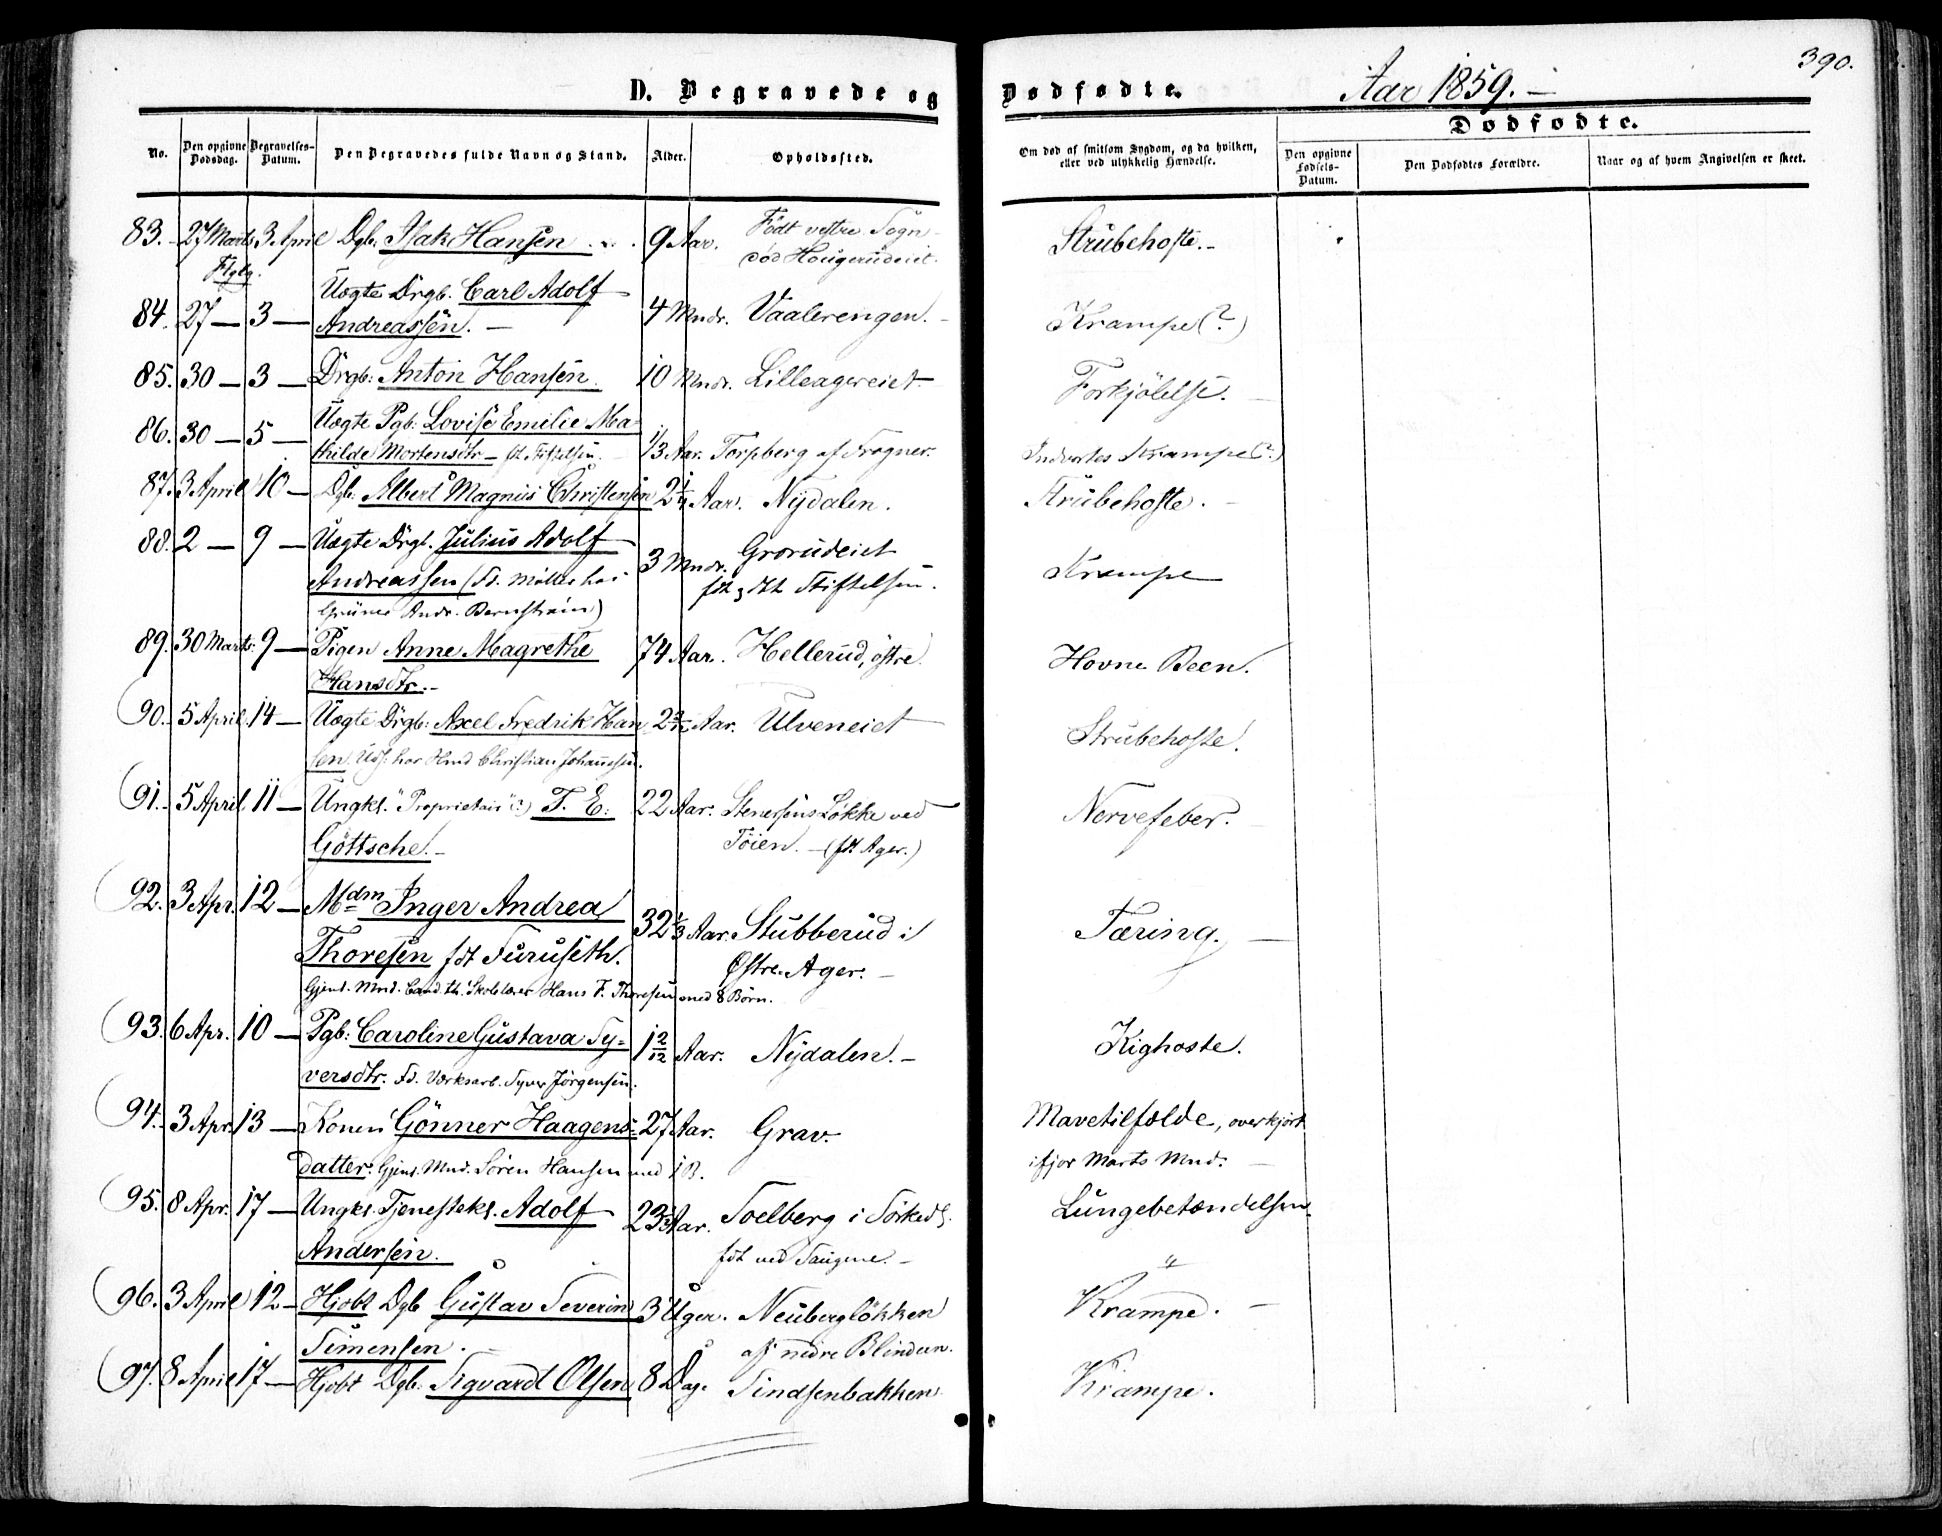 390.
D. Begravede og Dødfødte.
Aar 1859.
Dødfødte.
No.
Den opgivne Dødsdag.
Begravelses-Datum.
Den Begravedes fulde Navn og Stand.
Alder.
Opholdssted.
Om død af smitsom Sygdom, og da hvilken, eller ved ulykkelig Hændelse.
Den opgivne Fødsels-Datum.
Den Dødfødtes Forældre.
Naar og af hvem Angivelsen er skeet.
83. 27 Marts 3 April Dgb. Isak Hansen 9 Aar. Født vestre Sogn Strubehoste.
død Hougerudeiet.
Uægte Drgb. Carl Adolf
84. 27 — 3 — Andreassen. — 4 Mndr. Vaalerengen. Krampe (?)
85. 30 — 3 — Drgb: Anton Hansen. 10 Mndr. Lilleagereiet Forkjølelse.
Uægte Pgb: Lovise Emilie Ma-
86. 30 — 5 — thilde Mortensdtr — ft. Stiftelsen. 1/3 Aar. Torpberg af Frogner. Indvortes Krampe (?)
87. 3 April 10 — Dgb: Albert Magnus Christensen 2 1/4 Aar. Nydalen. Strubehoste.
88. 2 — 9 — Uægte Drgb. Julius Adolf 3 Mndr. Grorudeiet Krampe
Andreassen (Fd. Møller hos fdt & dbt Stiftelsen.
Grüner Andr. Bernström)
89. 30 Marts 9 — Pigen Anne Magrethe 74 Aar. Hellerud, østre. Hovne Been.
Hansdtr. —
90. 5 April 14 — Uægte Drgb: Axel Fredrik Han 2 2/12 Aar. Ulveneiet Strubehoste.
sen. Uds. hos Hmd Christian Johannesen.
91. 5 April 11 — Ungkl. "Proprietair" (?) T. E. 22 Aar. Stenersens Løkke ved Nervefeber.
Göttsche. — Tøien. — (fdt Ager.)
92. 3 Apr. 12 — Mdm Inger Andrea 32 1/3 Aar. Stubberud i Tæring. —
Thoresen fdt Furuseth. Østre Ager. —
Gjenl. Mnd. Cand. th. Skolelærer Hans F. Thoresen med 8 Børn.
93. 6 Apr. 10 — Pgb: Caroline Gustava Sy- 1 2/12 Aar. Nydalen. — Kighoste.
versdtr. Fd. Værksarb. Syver Jørgensen.
94. 3 Apr. 13 — Konen Gönner Haagens- 27 Aar. Grav. Mavetilfælde, overkjørt
datter. Gjenl. Mnd. Søren Hansen med 1 B. ifjor Marts Mnd. —
95. 8 Apr. 17 — Ungkl. Tjenestekl. Adolf 23 Aar. Soelberg i Sørked. Lungebetændelsen.
Andersen. fdt ved Saugene. —
96. 3 April 12 — Hjdbt Dgb Gustav Severin 3 Uger. Neubergløkken Krampe. —
Simensen. af nedre Blindern.
97. 8 April 17 — Hjdbt Dgb. Sigvardt Olsen 8 Dag. Sindsenbakken Krampe.